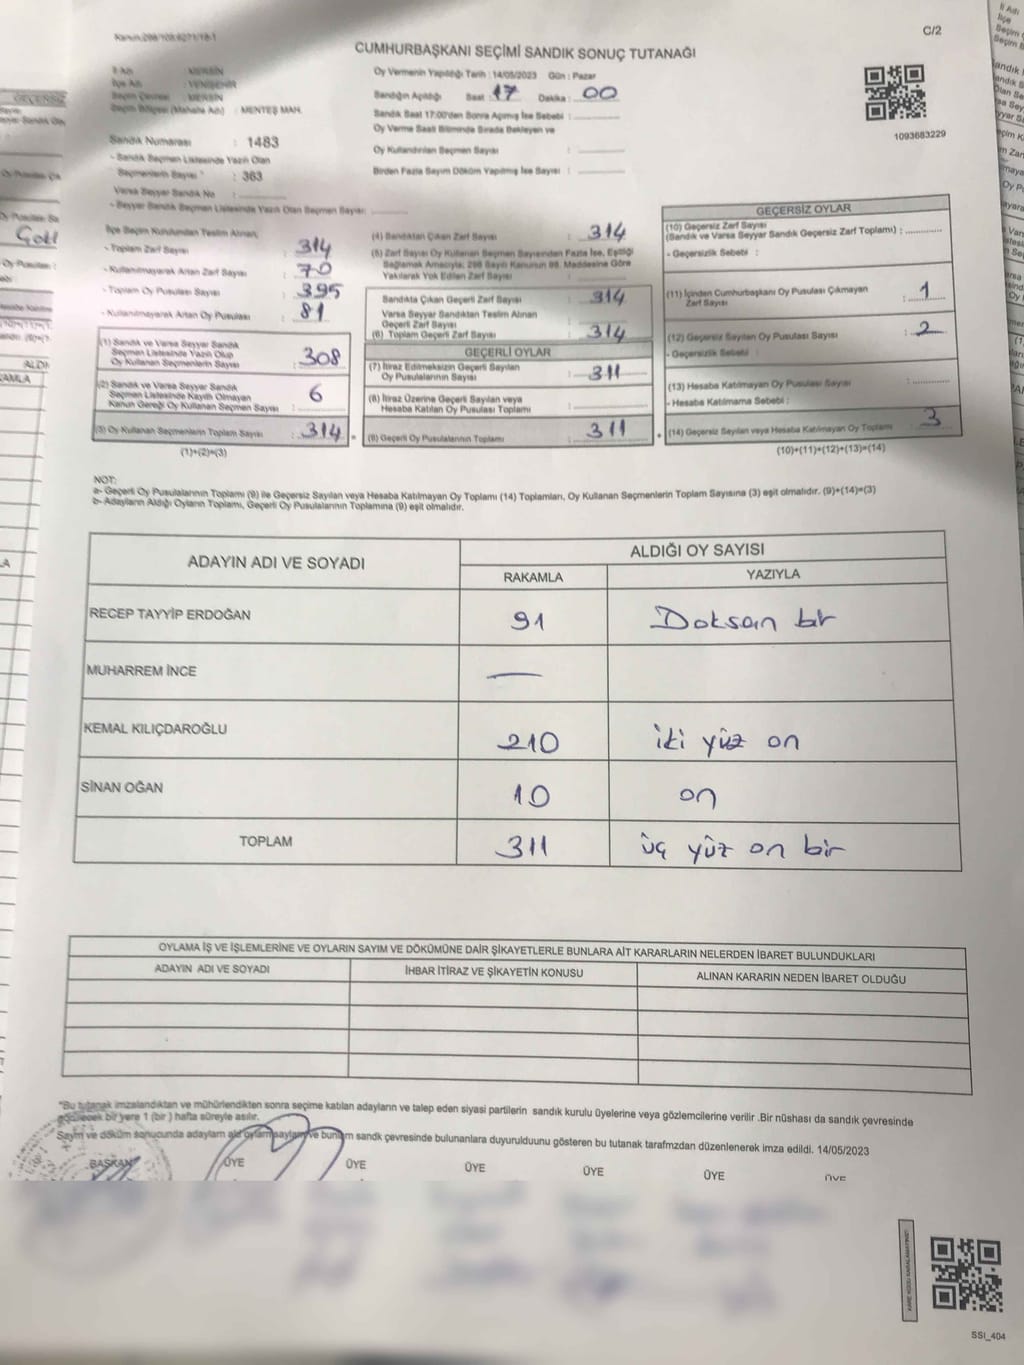 Kanun:298/108,6271/18-1
C/2
CUMHURBAŞKANI SEÇİMİ SANDIK SONUÇ TUTANAĞI
İl Adı : MERSİN
İlçe Adı : YENİŞEHİR
Seçim Çevresi : MERSİN
Seçim Bölgesi (Mahalle Adı) : MENTEŞ MAH.
Sandık Numarası : 1483
- Sandık Seçmen Listesinde Yazılı Olan
Seçmenlerin Sayısı : 363
Varsa Seyyar Sandık No :
- Seyyar Sandık Seçmen Listesinde Yazılı Olan Seçmen Sayısı:
Oy Vermenin Yapıldığı Tarih : 14/05/2023 Gün : Pazar
Sandığın Açıldığı Saat : 17 Dakika : 00
Sandık Saat 17:00'den Sonra Açılmış İse Sebebi :
Oy Verme Saati Bitiminde Sırada Bekleyen ve
Oy Kullandırılan Seçmen Sayısı :
Birden Fazla Sayım Döküm Yapılmış İse Sayısı :
1093683229
İlçe Seçim Kurulundan Teslim Alınan;
- Toplam Zarf Sayısı : 314
- Kullanılmayarak Artan Zarf Sayısı : 70
- Toplam Oy Pusulası Sayısı : 395
- Kullanılmayarak Artan Oy Pusulası : 81
(1) Sandık ve Varsa Seyyar Sandık
Seçmen Listesinde Yazılı Olup
Oy Kullanan Seçmenlerin Sayısı : 308
(2) Sandık ve Varsa Seyyar Sandık
Seçmen Listesinde Kayıtlı Olmayan
Kanun Gereği Oy Kullanan Seçmen Sayısı : 6
(3) Oy Kullanan Seçmenlerin Toplam Sayısı : 314 =
(1)+(2)=(3)
(4) Sandıktan Çıkan Zarf Sayısı : 314
(5) Zarf Sayısı Oy Kullanan Seçmen Sayısından Fazla İse, Eşitliği
Sağlamak Amacıyla, 298 Sayılı Kanunun 98. Maddesine Göre
Yakılarak Yok Edilen Zarf Sayısı :
Sandıkta Çıkan Geçerli Zarf Sayısı : 314
Varsa Seyyar Sandıktan Teslim Alınan
Geçerli Zarf Sayısı :
(6) Toplam Geçerli Zarf Sayısı : 314
GEÇERLİ OYLAR
(7) İtiraz Edilmeksizin Geçerli Sayılan
Oy Pusulalarının Sayısı : 311
(8) İtiraz Üzerine Geçerli Sayılan veya
Hesaba Katılan Oy Pusulası Toplamı :
(9) Geçerli Oy Pusulalarının Toplamı : 311 +
GEÇERSİZ OYLAR
(10) Geçersiz Zarf Sayısı
(Sandık ve Varsa Seyyar Sandık Geçersiz Zarf Toplamı) :
- Geçersizlik Sebebi :
(11) İçinden Cumhurbaşkanı Oy Pusulası Çıkmayan
Zarf Sayısı : 1
(12) Geçersiz Sayılan Oy Pusulası Sayısı : 2
- Geçersizlik Sebebi :
(13) Hesaba Katılmayan Oy Pusulası Sayısı :
- Hesaba Katılmama Sebebi :
(14) Geçersiz Sayılan veya Hesaba Katılmayan Oy Toplamı : 3
(10)+(11)+(12)+(13)=(14)
NOT:
a- Geçerli Oy Pusulalarının Toplamı (9) ile Geçersiz Sayılan veya Hesaba Katılmayan Oy Toplamı (14) Toplamları, Oy Kullanan Seçmenlerin Toplam Sayısına (3) eşit olmalıdır. (9)+(14)=(3)
b- Adayların Aldığı Oyların Toplamı, Geçerli Oy Pusulalarının Toplamına (9) eşit olmalıdır.
ADAYIN ADI VE SOYADI
ALDIĞI OY SAYISI
RAKAMLA YAZIYLA
RECEP TAYYİP ERDOĞAN 91 Doksan bir
MUHARREM İNCE —
KEMAL KILIÇDAROĞLU 210 iki yüz on
SİNAN OĞAN 10 on
TOPLAM 311 üç yüz on bir
OYLAMA İŞ VE İŞLEMLERİNE VE OYLARIN SAYIM VE DÖKÜMÜNE DAİR ŞİKAYETLERLE BUNLARA AİT KARARLARIN NELERDEN İBARET BULUNDUKLARI
ADAYIN ADI VE SOYADI İHBAR İTİRAZ VE ŞİKAYETİN KONUSU ALINAN KARARIN NEDEN İBARET OLDUĞU
"Bu tutanak imzalandıktan ve mühürlendikten sonra seçime katılan adayların ve talep eden siyasi partilerin sandık kurulu üyelerine veya gözlemcilerine verilir .Bir nüshası da sandık çevresinde
görülecek bir yere 1 (bir ) hafta süreyle asılır.
Sayım ve döküm sonucunda adayların ald oyların sayıları ve bunların sandk çevresinde bulunanlara duyurulduunu gösteren bu tutanak tarafmzdan düzenlenerek imza edildi. 14/05/2023
BAŞKAN ÜYE ÜYE ÜYE ÜYE ÜYE ÜYE
KARE KODU KARALAMAYINIZ!
SSI_404